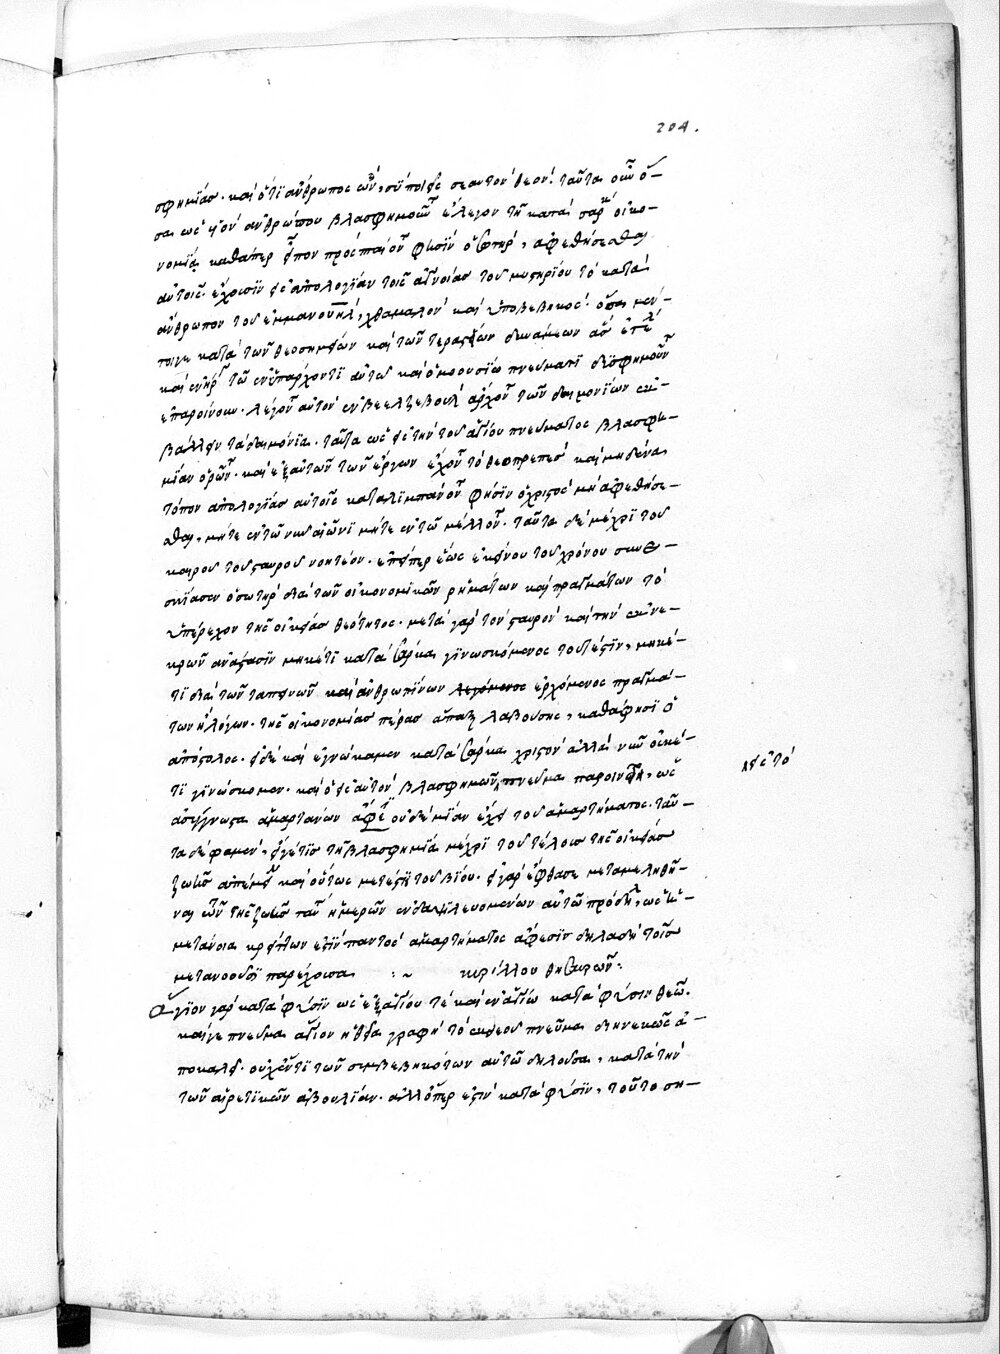 204.
σφημίας. καὶ ὅτι ἄνθρωπος ὢν, σὺ ποιεῖς σεαυτὸν θεόν. ταῦτα οὖν ὅ-
σα ὡς υἱὸν ἀνθρώπου βλασφημοῦν ἔλεγον τῇ κατὰ σάρκα οἰκο-
νομίᾳ καθάπερ προσπταίον φησὶν ὁ σωτὴρ, ἀφεθήσεσθαι
αὐτοῖς. ἔχουσιν εἰς ἀπολογίαν τοῖς ἀγνοίας τοῦ μυστηρίου τὸ κατὰ
ἄνθρωπον τοῦ ἐμμανουὴλ, χθαμαλὸν καὶ ὑποβεβηκός. ὅσα μέν-
τοιγε κατὰ τῶν θεοσημειῶν καὶ τῶν τεραστίων δυνάμεων
καὶ τῷ ἐνυπάρχοντι αὐτῷ καὶ ὁμοουσίῳ πνεύματι δυσφημοῦν
ἐπαροίνουν. λέγον αὐτὸν ἐν βεελζεβοὺλ ἄρχον τῶν δαιμονίων ἐκ-
βάλλειν τὰ δαιμόνια. ταῦτα ὡς εἰς τὴν τοῦ ἁγίου πνεύματος βλασφη-
μίαν ὁρῶν. καὶ ἐξ αὐτῶν τῶν ἔργων ἔχον τὸ θεοπρεπὲς καὶ μηδένα
τόπον ἀπολογίας αὐτοῖς καταλιμπάνον φησὶν ὁ χριστὸς μὴ ἀφεθήσε-
σθαι, μήτε ἐν τῷ νῦν αἰῶνι μήτε ἐν τῷ μέλλον. ταῦτα δὲ μέχρι τοῦ
καιροῦ τοῦ σταυροῦ νοητέον. ἐπείπερ ἕως ἐκείνου τοῦ χρόνου συνε-
σκίασεν ὁ σωτὴρ διὰ τῶν οἰκονομικῶν ῥημάτων καὶ πραγμάτων τὸ
ὑπέρεχον τῆς οἰκείας θεότητος. μετὰ γὰρ τὸν σταυρὸν καὶ τὴν ἐκ νε-
κρῶν ἀνάστασιν μηκέτι κατὰ σάρκα γινωσκόμενος τουτέστιν, μηκέ-
τι διὰ τῶν ταπεινῶν καὶ ἀνθρωπίνων λεγόμενος ἐρχόμενος πραγμά-
των ἢ λόγων. τῆς οἰκονομίας πέρας ἅπαξ λαβούσης, καθά φησι ὁ
ἀπόστολος. εἰ δὲ καὶ ἐγνώκαμεν κατὰ σάρκα χριστὸν ἀλλὰ νῦν οὐκέ-
τι γινώσκομεν. καὶ ὁ εἰς αὐτὸν βλασφημῶν πνεῦμα παροινεῖ, ὡς
λ εἰς τὸ
ἀσύγγνωστα ἁμαρτάνων ἄφε οὐδεμίαν ἔχει τοῦ ἁμαρτήματος. ταῦ-
τα δέ φαμεν, εἴγέτις τῇ βλασφημίᾳ μέχρι τοῦ τέλους τῆς οἰκείας
ζωῆς καὶ οὕτως μετέστη τοῦ βίου. εἰ γὰρ ἔφθασε μεταμεληθῆ-
ναι τῆς ζωῆς ἡμερῶν αὐτῷ ὡς ἡ
μετάνοια κρείττων ἐστὶν παντὸς ἁμαρτήματος ἄφεσιν δηλαδὴ τοῖς
μετανοοῦσι παρέχουσα :~ κυρίλλου θησαυρῶν:
Ἅγιον γὰρ κατὰ φύσιν ὡς ἐξ ἁγίου τὲ καὶ ἐν ἁγίῳ κατὰ φύσιν θεῷ.
καίγε πνεῦμα ἅγιον ἡ θεία γραφὴ τὸ ἐκ θεοῦ πνεῦμα διηνεκῶς ἀ-
ποκαλεῖ. οὐχ ἕν τι τῶν συμβεβηκότων αὐτῷ δηλοῦσα, κατὰ τὴν
τῶν αἱρετικῶν ἀβουλίαν. ἀλλ' ὅπερ ἐστὶν κατὰ φύσιν, τοῦτο ση-